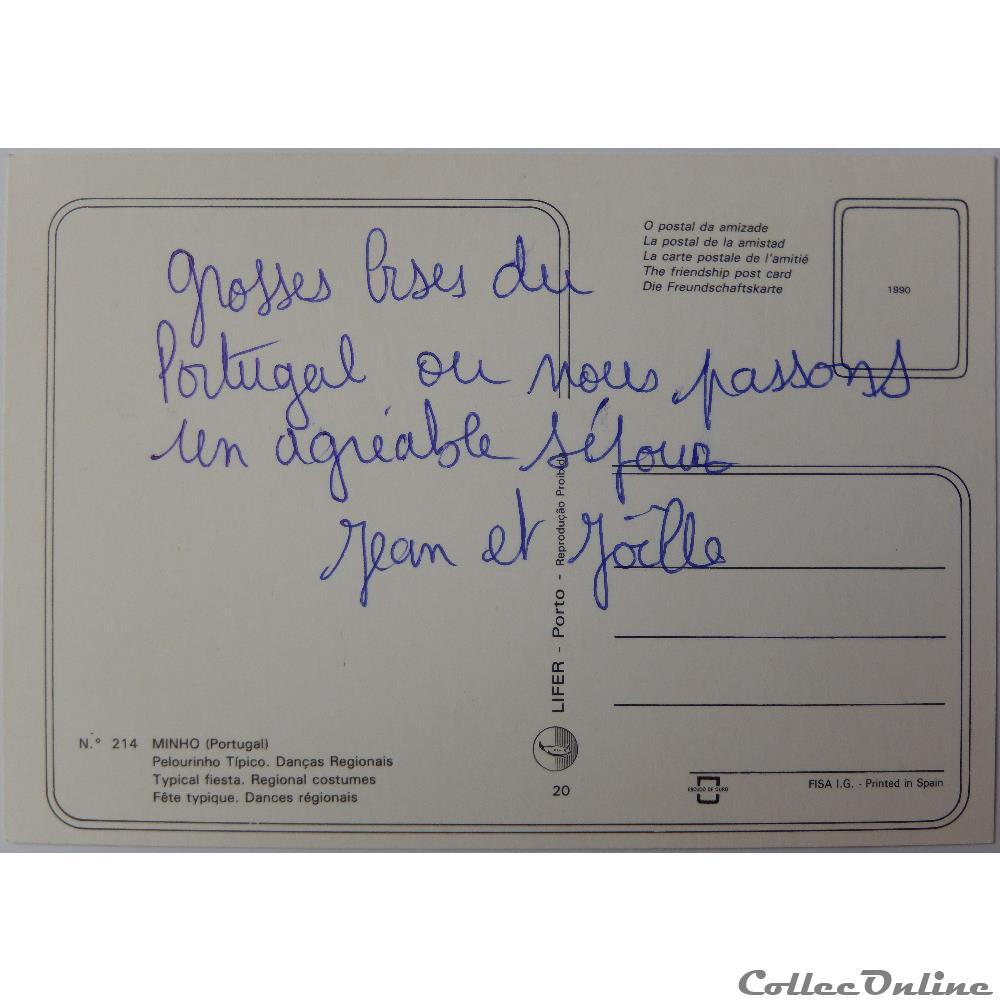 O postal da amizade
La postal de la amistad
La carte postale de l'amitié
The friendship post card
Die Freundschaftskarte
1990
grosses bises du
Portugal ou nous passons
un agréable séjour
Jean et Joëlle
LIFER - Porto - Reprodução Proibida
N.° 214 MINHO (Portugal)
Pelourinho Típico. Danças Regionais
Typical fiesta. Regional costumes
Fête typique. Dances régionais
20
ESCUDO DE OURO
FISA I.G. - Printed in Spain
CollecOnline